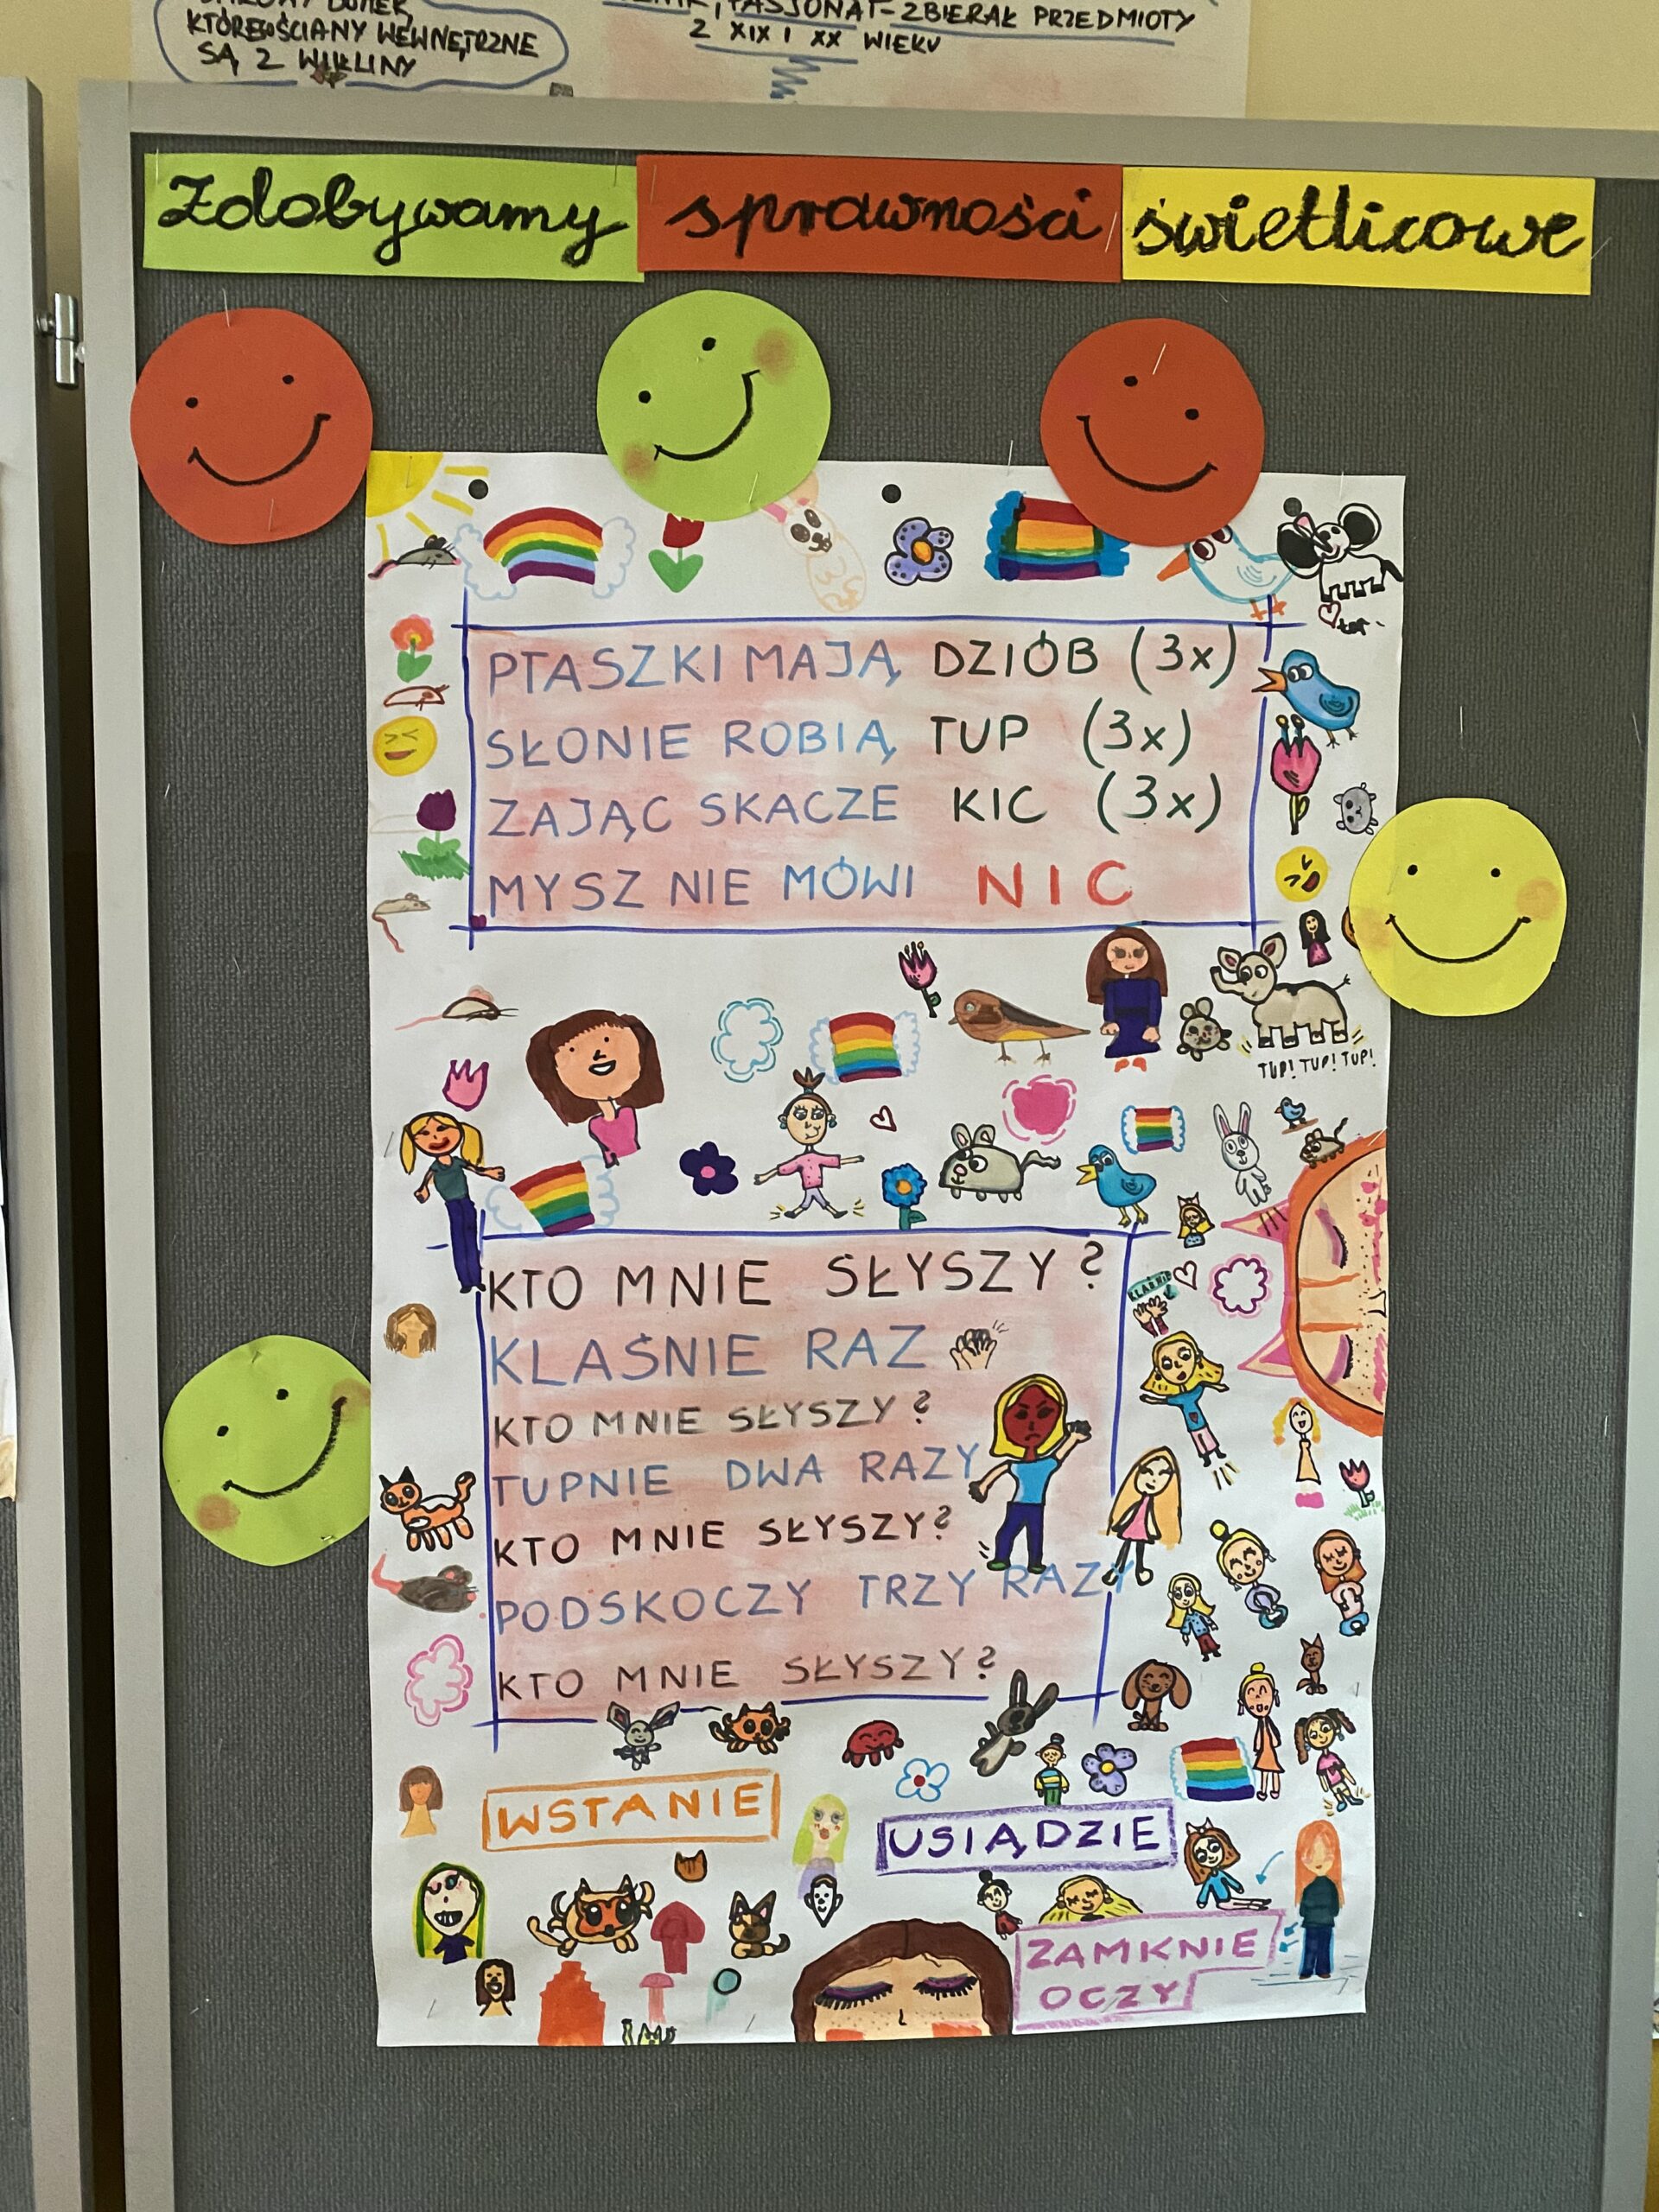 KTÓREJ ŚCIANY WEWNĘTRZNE
SĄ Z WIKLINY
PASJONAT - ZBIERAŁ PRZEDMIOTY
Z XIX I XX WIEKU
Zdobywamy sprawności świetlicowe
PTASZKI MAJĄ DZIÓB (3x)
SŁONIE ROBIĄ TUP (3x)
ZAJĄC SKACZE KIC (3x)
MYSZ NIE MÓWI NIC
TUP! TUP! TUP!
KTO MNIE SŁYSZY?
KLAŚNIE RAZ
KTO MNIE SŁYSZY?
TUPNIE DWA RAZY
KTO MNIE SŁYSZY?
PODSKOCZY TRZY RAZY
KTO MNIE SŁYSZY?
WSTANIE
USIĄDZIE
ZAMKNIE
OCZY